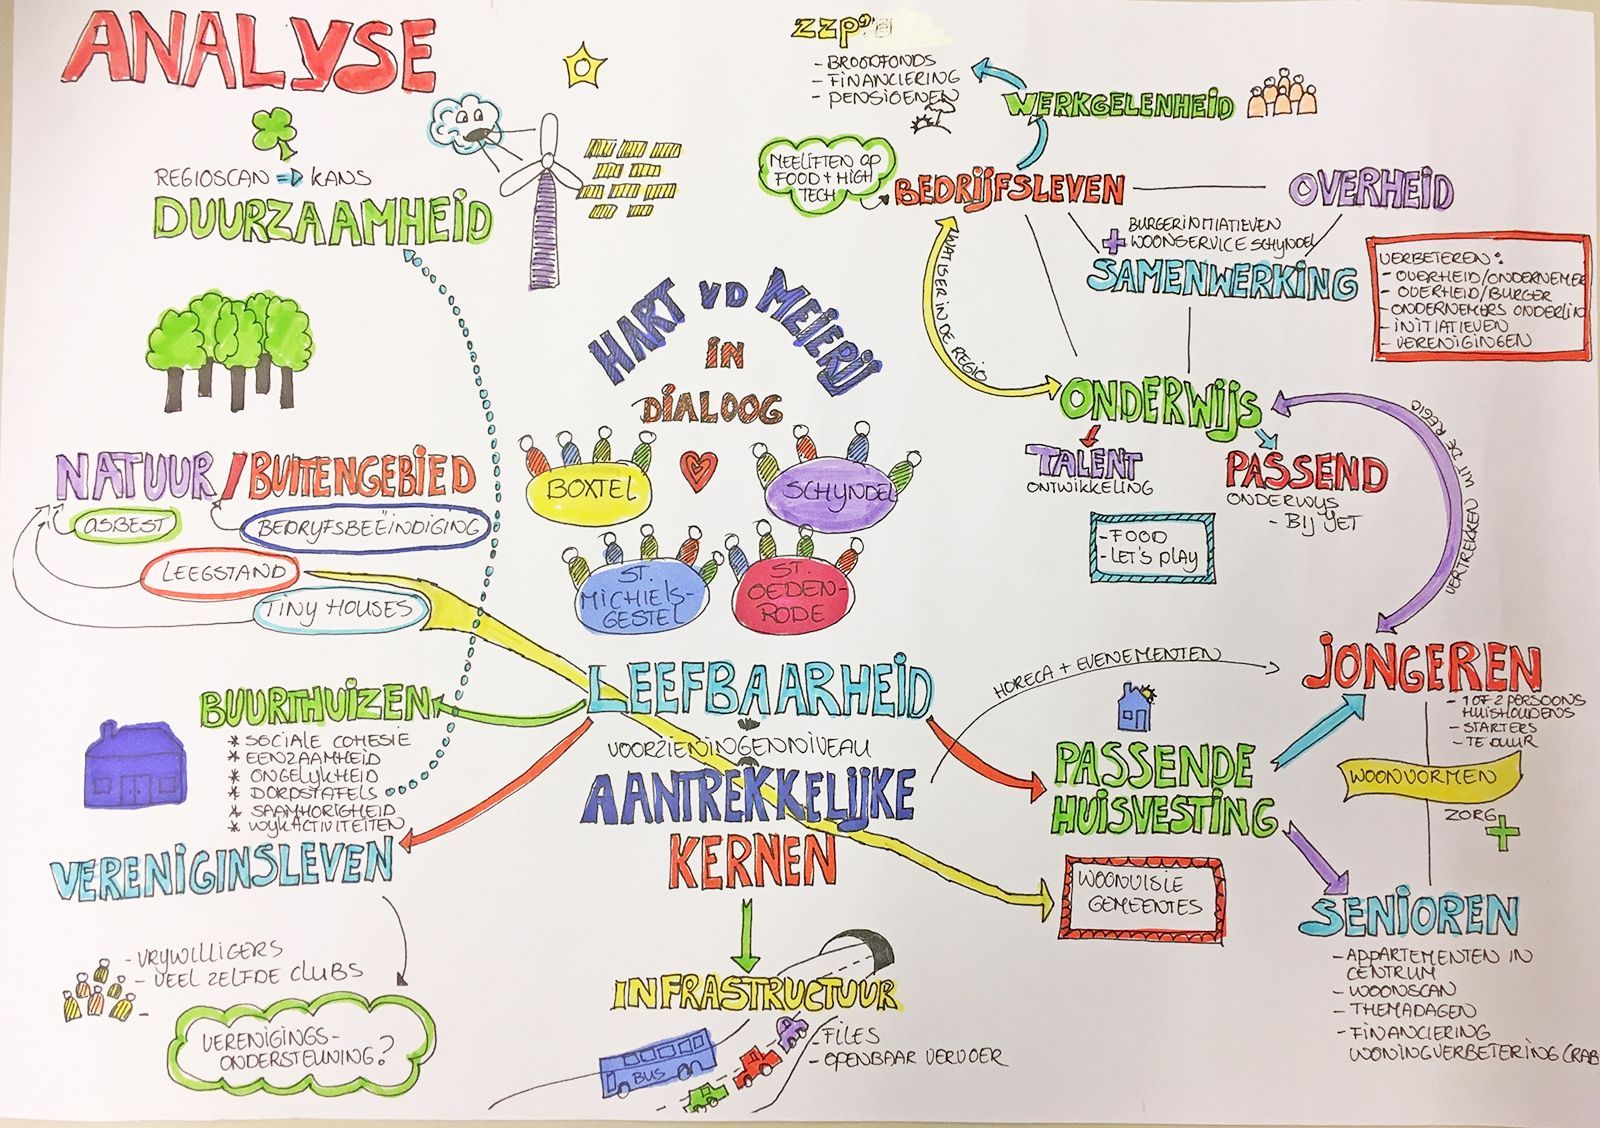 ANALYSE
REGIOSCAN => KANS
DUURZAAMHEID
ZZP'
- BROODFONDS
- FINANCIERING
- PENSIOENEN
WERKGELENHEID
MEELIFTEN OP
FOOD + HIGH
TECH
BEDRIJFSLEVEN
OVERHEID
BURGERINITIATIEVEN
+ WOONSERVICE SCHIJNDEL
SAMENWERKING
VERBETEREN:
- OVERHEID/ONDERNEMER
- OVERHEID/BURGER
- ONDERNEMERS ONDERLIN
- INITIATIEVEN
- VERENIGINGEN
WAT IS ER IN DE REGIO
ONDERWIJS
TALENT
ONTWIKKELING
PASSEND
ONDERWIJS
- BIJ VET
- FOOD
- LET'S PLAY
VERTREKKEN UIT DE REGIO
HART VD MEIERIJ
IN
DIALOOG
BOXTEL
SCHIJNDEL
ST.
MICHIELS-
GESTEL
ST.
OEDEN-
RODE
NATUUR / BUITENGEBIED
ASBEST
BEDRIJFSBEËINDIGING
LEEGSTAND
TINY HOUSES
LEEFBAARHEID
VOORZIENINGENNIVEAU
AANTREKKELIJKE
KERNEN
BUURTHUIZEN
* SOCIALE COHESIE
* EENZAAMHEID
* ONGELIJKHEID
* DORPSTAFELS
* SAAMHORIGHEID
* WIJKACTIVITEITEN
VERENIGINSLEVEN
- VRIJWILLIGERS
- VEEL ZELFDE CLUBS
-
VERENIGINGS-
ONDERSTEUNING?
INFRASTRUCTUUR
- FILES
- OPENBAAR VERVOER
BUS
HORECA + EVENEMENTEN
JONGEREN
- 1 OF 2 PERSOONS
HUISHOUDENS
- STARTERS
- TE DUUR
PASSENDE
HUISVESTING
WOONVORMEN
ZORG +
WOONVISIE
GEMEENTES
SENIOREN
- APPARTEMENTEN IN
CENTRUM
- WOONSCAN
- THEMADAGEN
- FINANCIERING
WONINGVERBETERING (RAB